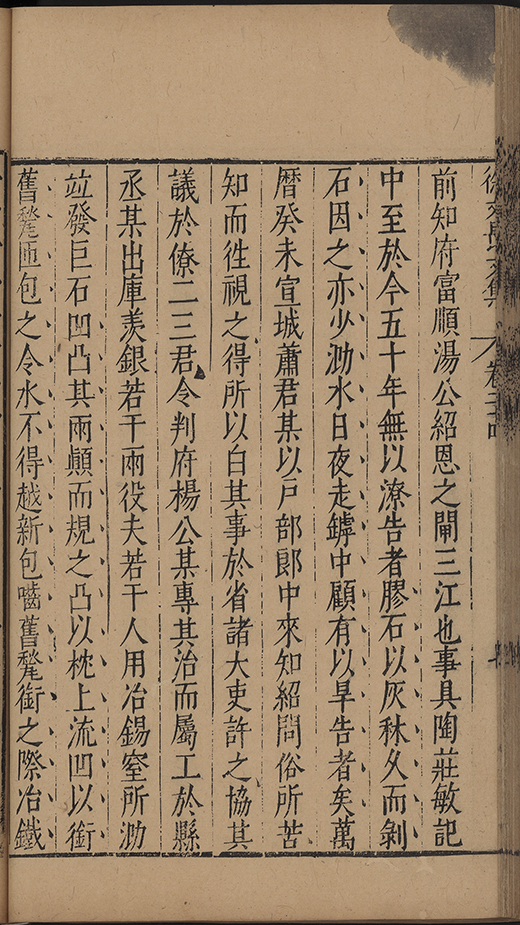 前知府富順湯公紹恩之閘三江也事具陶莊敏記
中至於今五十年無以潦告者膠石以灰秫久而剝
石因之亦少泐水日夜走罅中顧有以旱告者矣萬
曆癸未宣城蕭君某以戶部郎中來知紹問俗所苦
知而徃視之得所以白其事於省諸大吏許之協其
議於僚二三君令判府楊公某專其治而屬工於縣
丞某出庫羨銀若干兩役夫若干人用冶錫窒所泐
竝發巨石凹凸其兩顚而規之凸以枕上流凹以銜
舊氂匝包之令水不得越新包嚙舊氂銜之際冶鐵